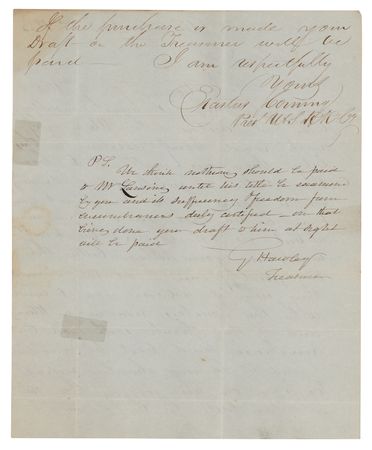 If the purchase is made your
Draft on the Treasurer will be
paid — I am respectfully
Yours
Erastus Corning
Prest U & S R R Co
P S. We think nothing should be paid
to Mr Lansing until his title be examined
by you and its sufficiency & freedom from
incumbrances duly certified — on that
being done your draft to him at sight
will be paid
G Hawley
Treasurer